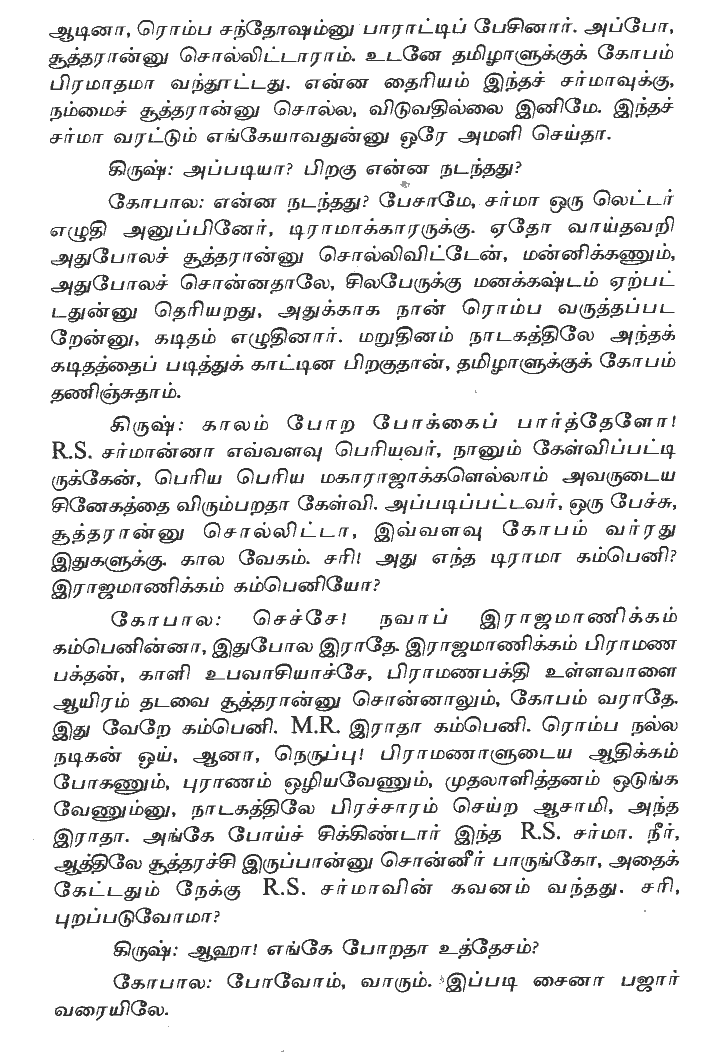 ஆடினா, ரொம்ப சந்தோஷம்னு பாராட்டிப் பேசினார். அப்போ,
சூத்தரான்னு சொல்லிட்டாராம். உடனே தமிழாளுக்குக் கோபம்
பிரமாதமா வந்தூட்டது. என்ன தைரியம் இந்தச் சர்மாவுக்கு,
நம்மைச் சூத்தரான்னு சொல்ல, விடுவதில்லை இனிமே. இந்தச்
சர்மா வரட்டும் எங்கேயாவதுன்னு ஒரே அமளி செய்தா.
கிருஷ்: அப்படியா? பிறகு என்ன நடந்தது?
கோபால: என்ன நடந்தது? பேசாமே, சர்மா ஒரு லெட்டர்
எழுதி அனுப்பினேர், டிராமாக்காரருக்கு. ஏதோ வாய்தவறி
அதுபோலச் சூத்தரான்னு சொல்லிவிட்டேன், மன்னிக்கணும்,
அதுபோலச் சொன்னதாலே, சிலபேருக்கு மனக்கஷ்டம் ஏற்பட்
டதுன்னு தெரியறது, அதுக்காக நான் ரொம்ப வருத்தப்பட
றேன்னு, கடிதம் எழுதினார். மறுதினம் நாடகத்திலே அந்தக்
கடிதத்தைப் படித்துக் காட்டின பிறகுதான், தமிழாளுக்குக் கோபம்
தணிஞ்சுதாம்.
கிருஷ்: காலம் போற போக்கைப் பார்த்தேளோ!
R.S. சர்மான்னா எவ்வளவு பெரியவர், நானும் கேள்விப்பட்டி
ருக்கேன், பெரிய பெரிய மகாராஜாக்களெல்லாம் அவருடைய
சினேகத்தை விரும்பறதா கேள்வி. அப்படிப்பட்டவர், ஒரு பேச்சு,
சூத்தரான்னு சொல்லிட்டா, இவ்வளவு கோபம் வர்ரது
இதுகளுக்கு. கால வேகம். சரி! அது எந்த டிராமா கம்பெனி?
இராஜமாணிக்கம் கம்பெனியோ?
கோபால: செச்சே! நவாப் இராஜமாணிக்கம்
கம்பெனின்னா, இதுபோல இராதே. இராஜமாணிக்கம் பிராமண
பக்தன், காளி உபவாசியாச்சே, பிராமணபக்தி உள்ளவாளை
ஆயிரம் தடவை சூத்தரான்னு சொன்னாலும், கோபம் வராதே.
இது வேறே கம்பெனி. M.R. இராதா கம்பெனி. ரொம்ப நல்ல
நடிகன் ஒய், ஆனா, நெருப்பு! பிராமணாளுடைய ஆதிக்கம்
போகணும், புராணம் ஒழியவேணும், முதலாளித்தனம் ஒடுங்க
வேணும்னு, நாடகத்திலே பிரச்சாரம் செய்ற ஆசாமி, அந்த
இராதா. அங்கே போய்ச் சிக்கிண்டார் இந்த R.S. சர்மா. நீர்,
ஆத்திலே சூத்தரச்சி இருப்பான்னு சொன்னீர் பாருங்கோ, அதைக்
கேட்டதும் நேக்கு R.S. சர்மாவின் கவனம் வந்தது. சரி,
புறப்படுவோமா?
கிருஷ்: ஆஹா! எங்கே போறதா உத்தேசம்?
கோபால: போவோம், வாரும். இப்படி சைனா பஜார்
வரையிலே.